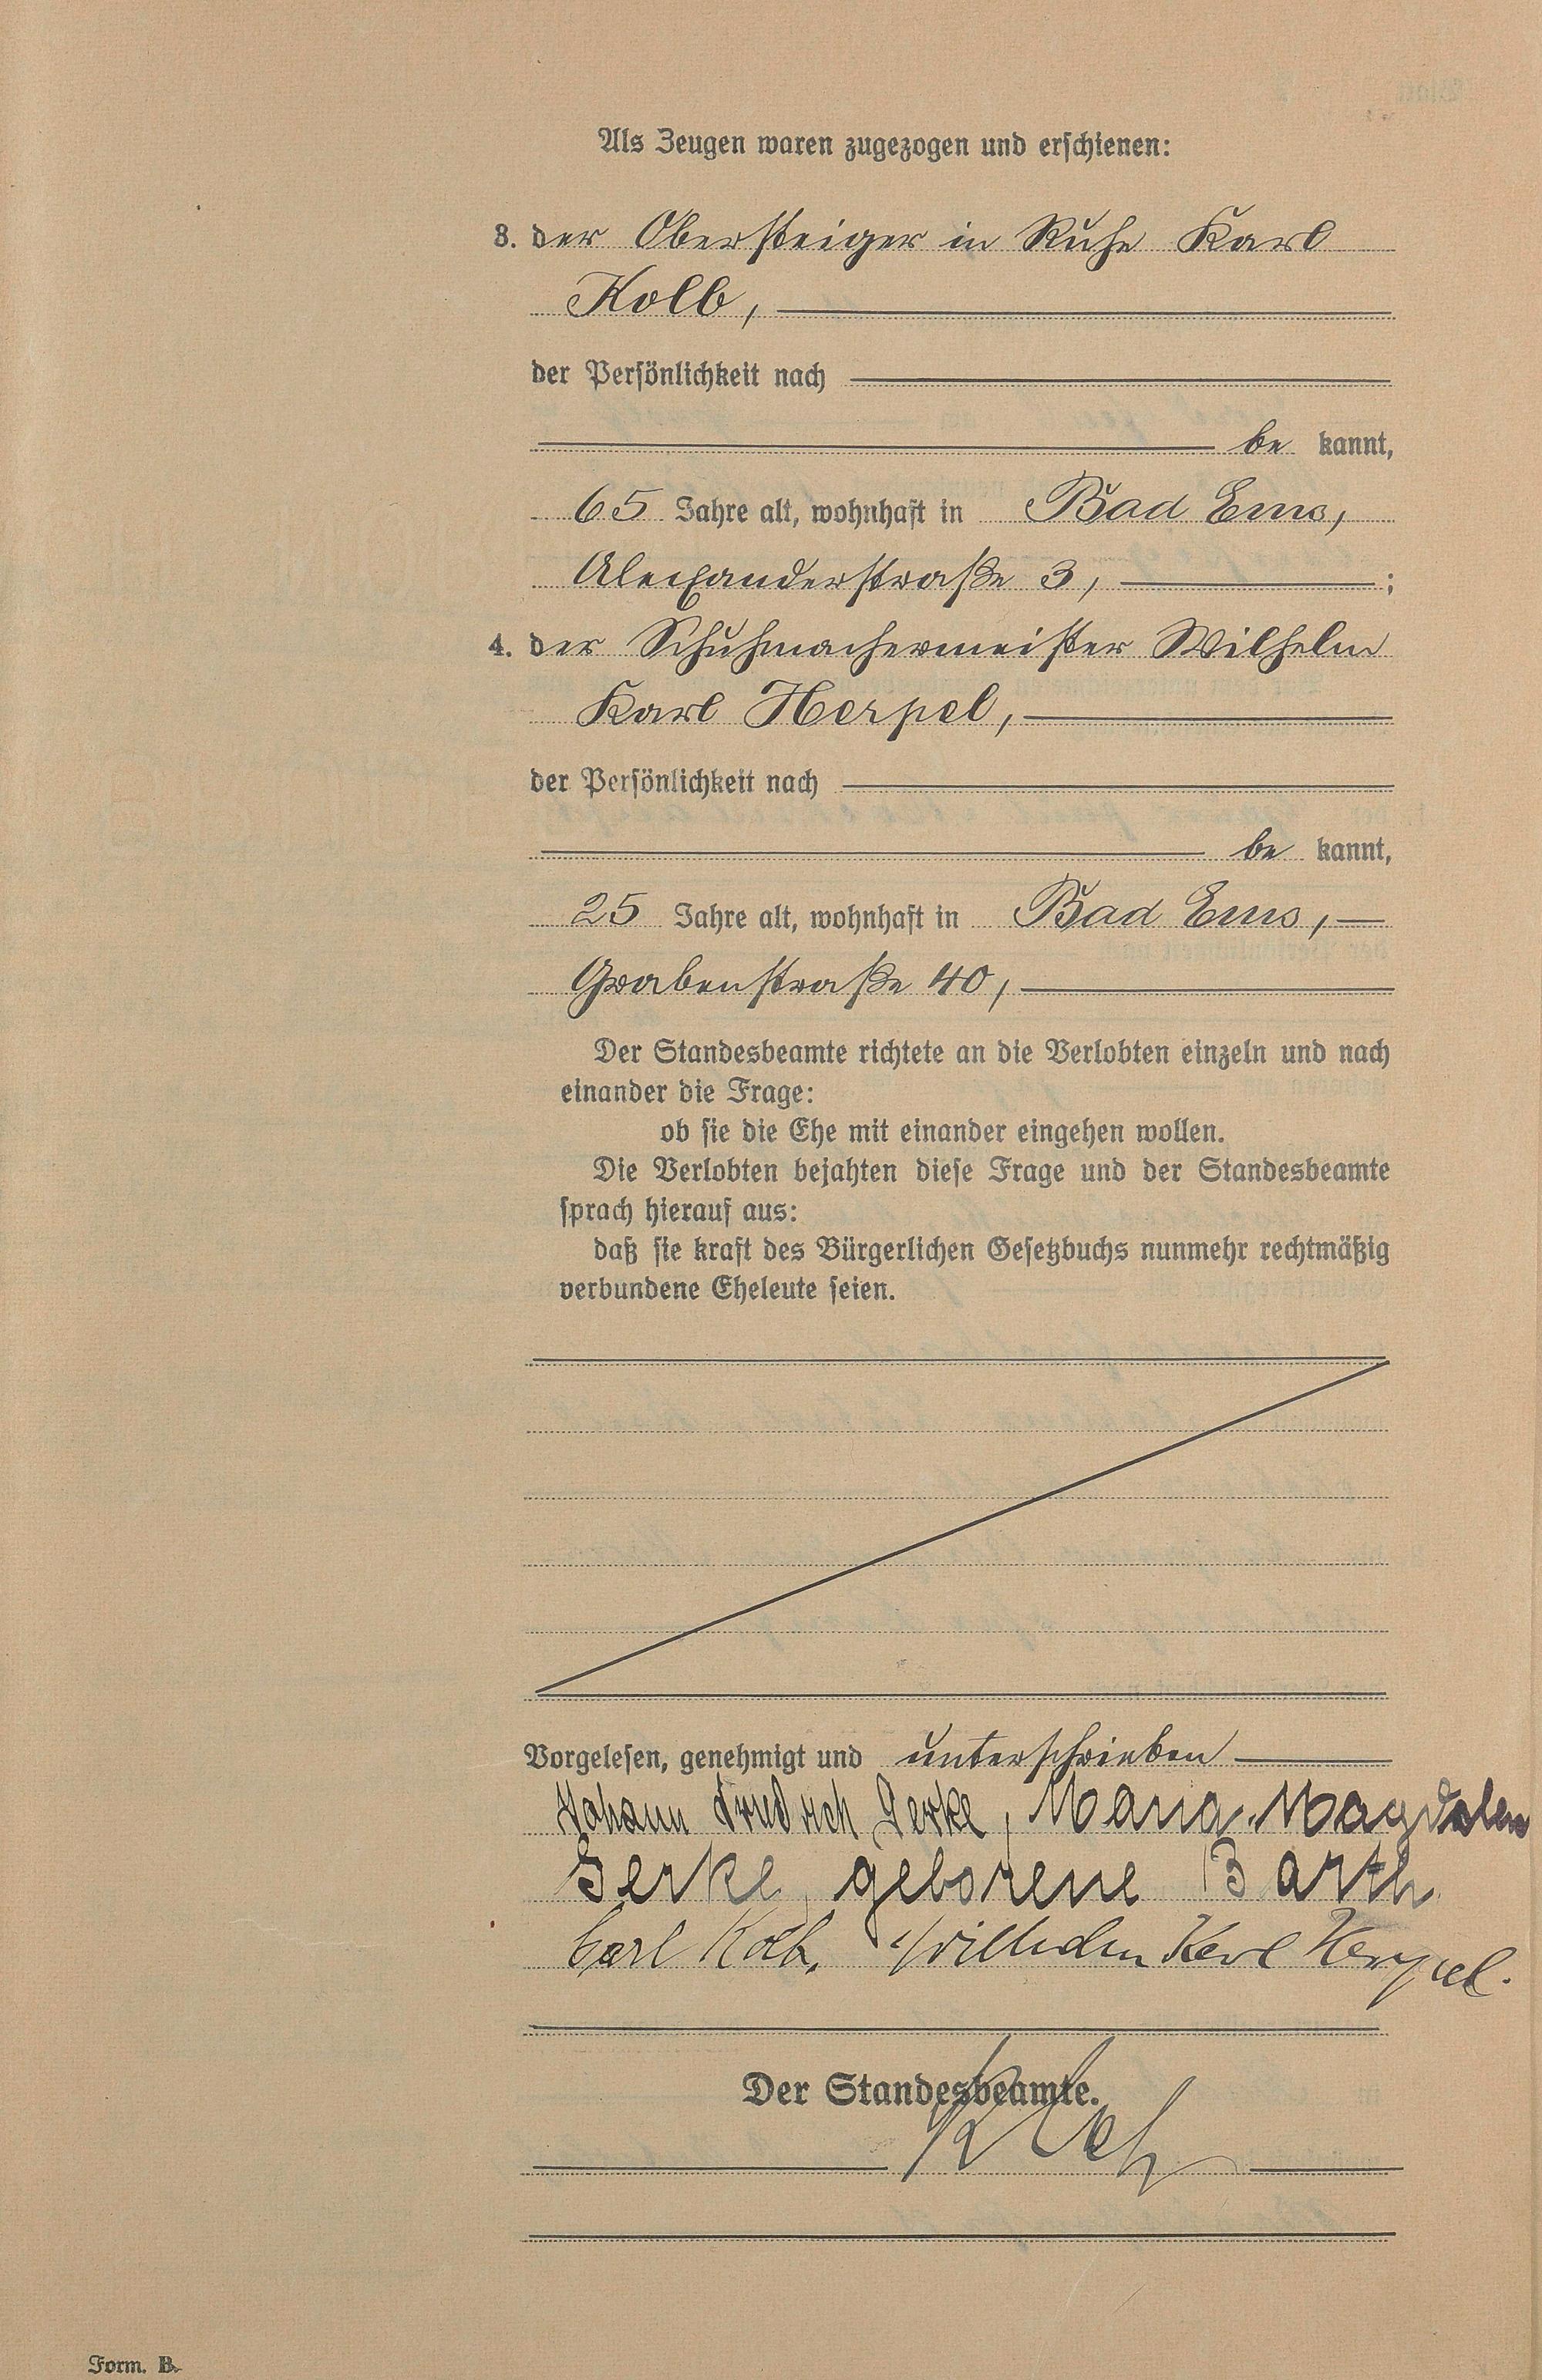 Als Zeugen waren zugezogen und erschienen:
3. der Obersteiger in Ruhe Karl
Kolb,
der Persönlichkeit nach
be kannt,
65 Jahre alt, wohnhaft in Bad Ems,
Alexanderstraße 3, ;
4. der Schuhmachermeister Wilhelm
Karl Herpel,
der Persönlichkeit nach
be kannt,
25 Jahre alt, wohnhaft in Bad Ems,
Grabenstraße 40,
Der Standesbeamte richtete an die Verlobten einzeln und nach
einander die Frage:
ob sie die Ehe mit einander eingehen wollen.
Die Verlobten bejahten diese Frage und der Standesbeamte
sprach hierauf aus:
daß sie kraft des Bürgerlichen Gesetzbuchs nunmehr rechtmäßig
verbundene Eheleute seien.
Vorgelesen, genehmigt und unterschrieben
Johann Friedrich Gerke, Maria Magdalena
Gerke, geborene Barth
Carl Kolb. Wilhelm Karl Herpel.
Der Standesbeamte.
Form. B.